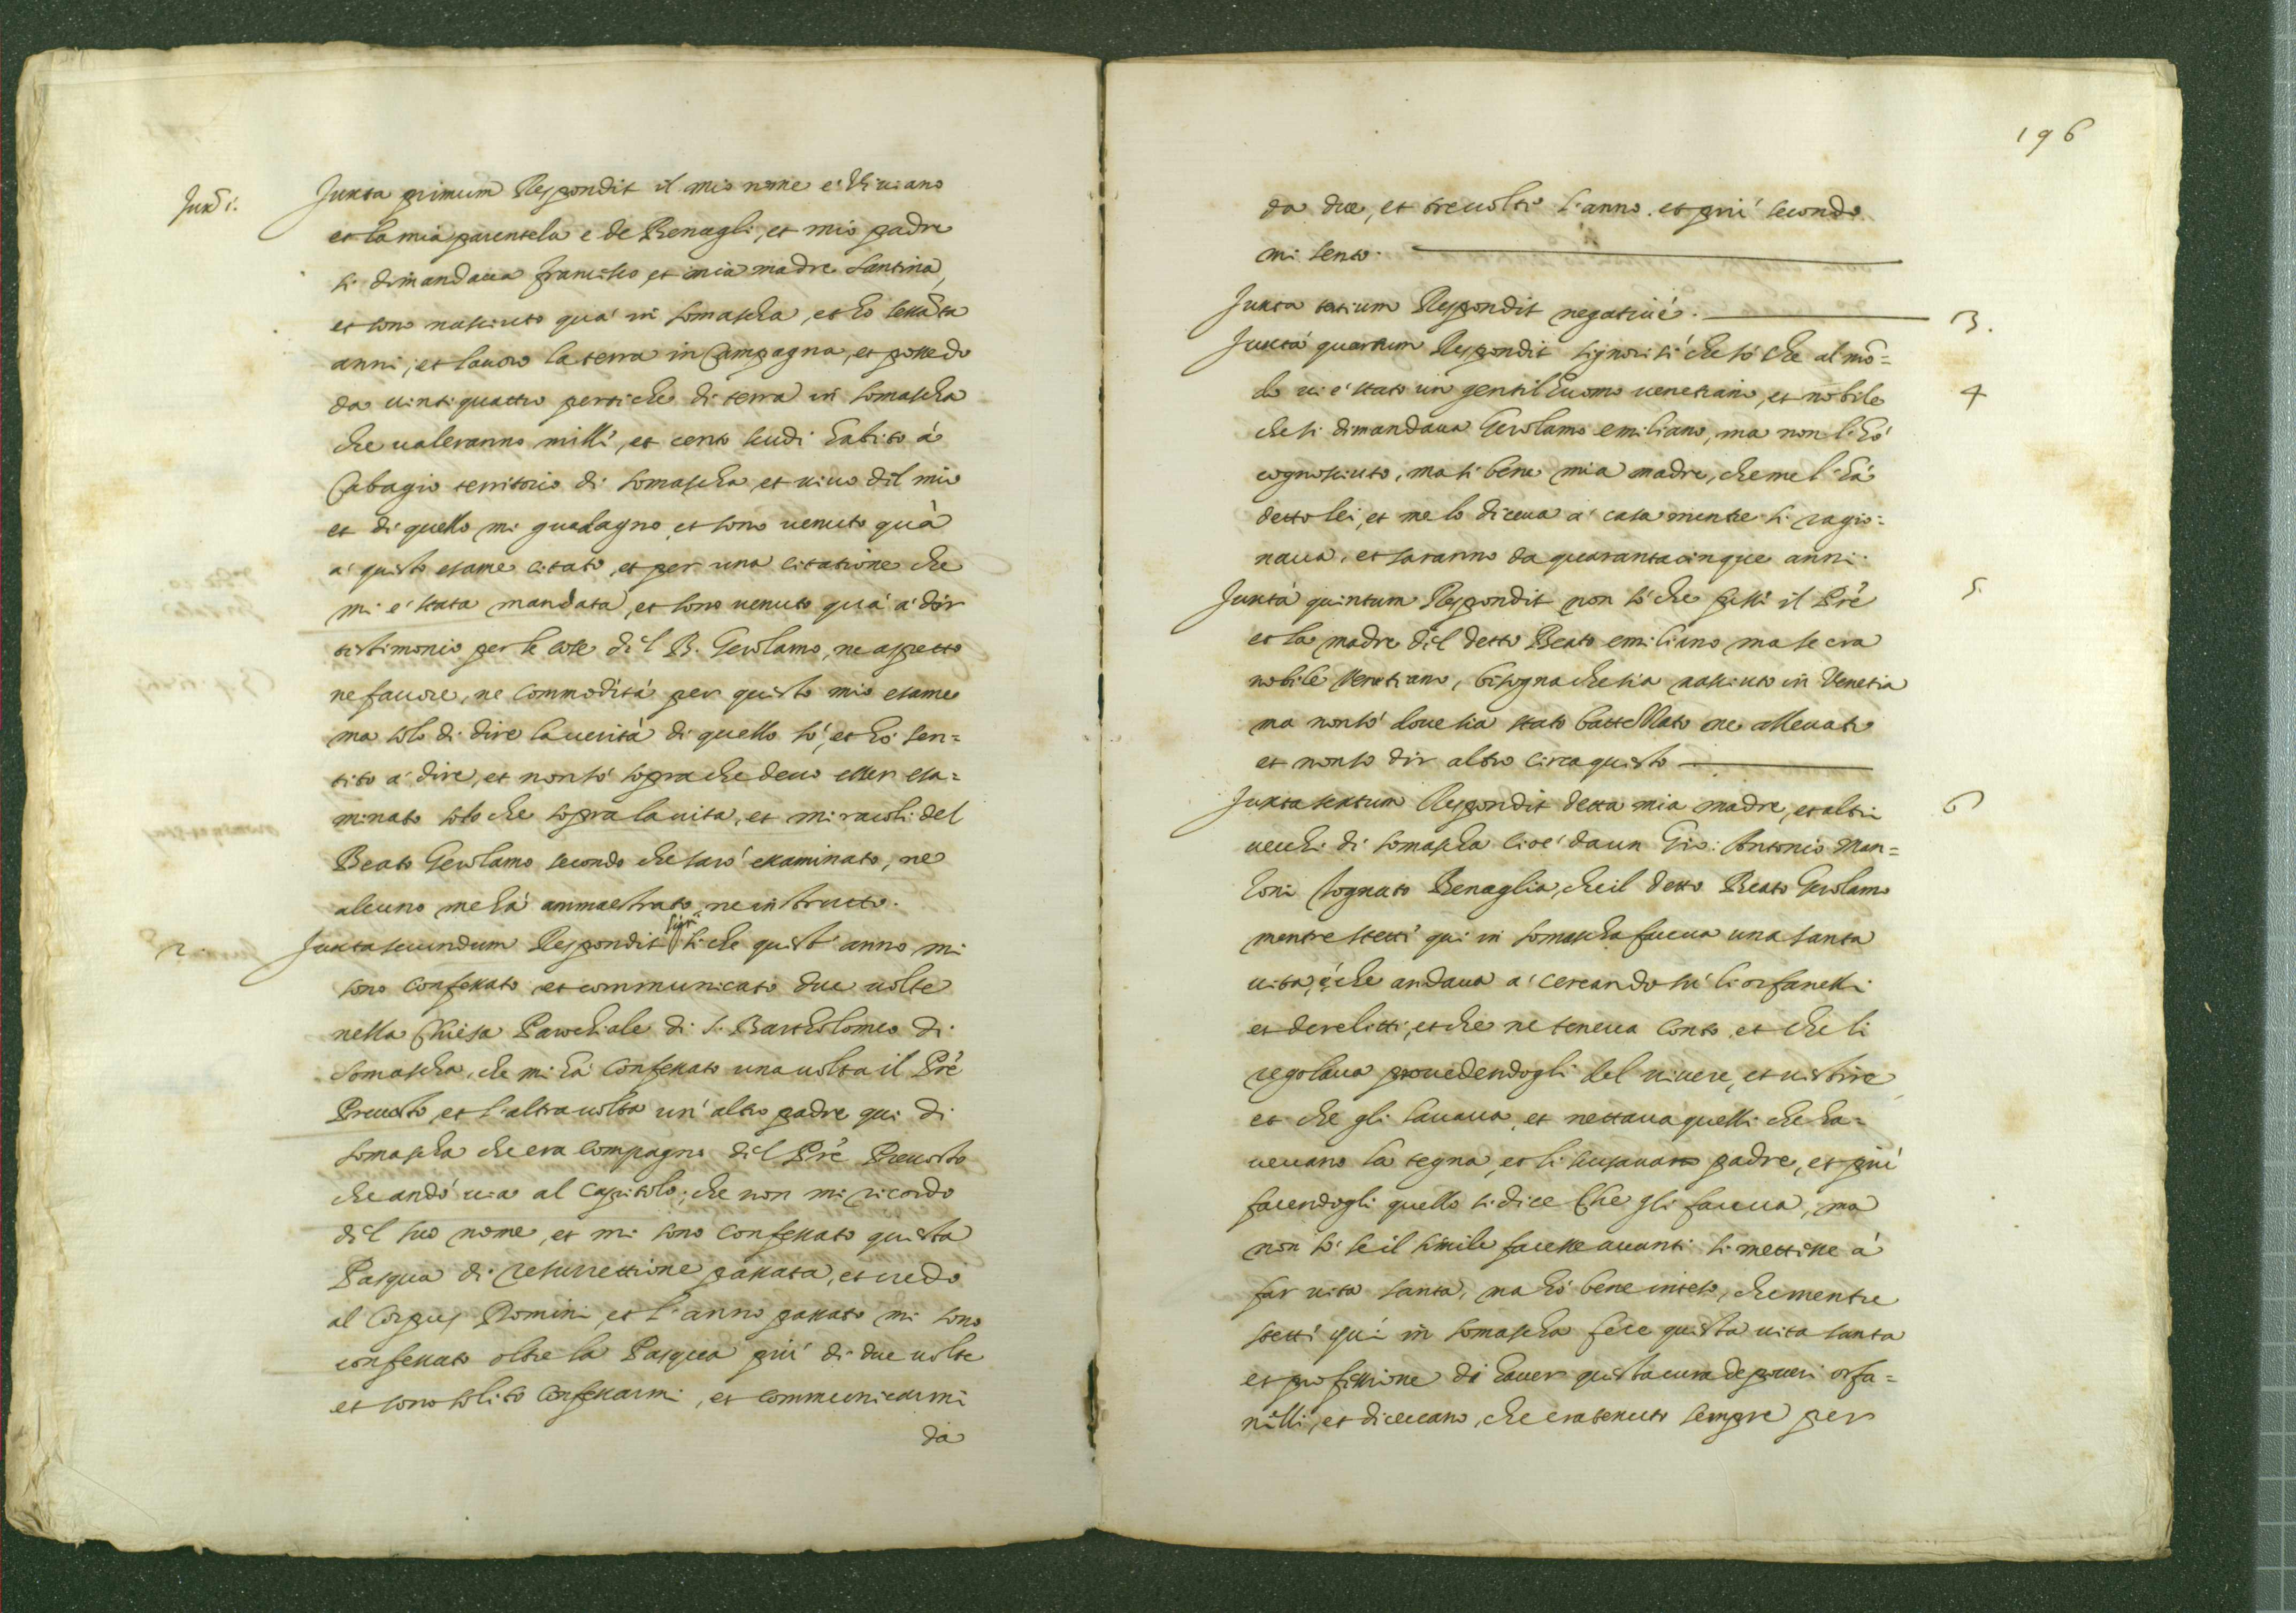 Juxta i.
Juxta primum Respondit il mio nome e' Viviano
et la mia parentela e de Benagli, et mio padre
si dimandava Francisco et mia madre Santina,
et sono nasciuto qua' in Somascha, et ho sessãta
anni, et lavoro la terra in Campagna, et possedo
da vintiquattro pertiche di terra in Somascha
che valeranno milli, et cento scudi habito à
Cabagio territorio di Somascha et vivo dil mio
et di quello mi guadagno, et sono venuto quà
a' quisto esame citato, et per una citatione che
mi e' stata mandata, et sono venuto quà a' dir
tistimonio per le cose dil B. Gerolamo, ne aspetto
ne favore, ne commodità per quisto mio esame
ma solo di dire la verità di quello sò, et hò sen=
tito a' dire, et non sò sopra che devo esser esa=
minato solo che sopra la vita, et miracoli del
Beato Gerolamo secondo che sarò essaminato, ne
alcuno me hà ammaestrato ne instrutto.
2.
Juxta secundum Respondit Sigr. si che quist' anno mi
sono confessato et communicato due volte
nella Chiesa Parochiale di S. Bartholomeo di
Somascha, che mi hà confessato una volta il Prê
Prevosto, et l'altra volta un' altro padre qui di
Somascha che era compagno dil Prê Prevosto
che andò via al Capitolo, che non mi ricordo
dil suo nome, et mi sono confessato quista
Pasqua di resurrettione passata, et credo
al Corpus Domini, et l'anno passato mi sono
confessato oltre la Pasqua più di due volte
et sono solito confessarmi, et communicarmi
da
196
da due, et tre volte l'anno, et più secondo
mi sento.
Juxta tertium Respondit negativè.
3.
Juxta quartum Respondit signor si che sò che al mõ=
4
do vi e' stato un gentilhuomo venetiano, et nobile
che si dimandava Gerolamo emiliano, ma non l'hò
cognosciuto, ma si bene mia madre, che me l'hà
detto lei, et me lo diceva a' casa mentre si ragio=
nava, et saranno da quarantacinque anni.
Juxta quintum Respondit non sò che fussi il Prê
5.
et la madre dil detto Beato emiliano ma se era
nobile Venetiano, bisogna che sia nasciuto in Venetia
ma non sò dove sia stato battezzato ne allevato
et non so dir altro circa quisto
Juxta sextum Respondit detta mia madre, et altri
6
vecchi di Somascha cioè da un Gio: Antonio Man=
zoni cognato Benaglia, che il detto Beato Gerolamo
mentre stetti qui in Somascha faceva una santa
vita, e che andava a' cercando sù li orfanelli
et derelitti, et che ne teneva conto, et che li
regolava provedendogli del vivere, et vistire
et che gli lavava, et nettava quelli che ha=
vevano la tegna, et li scusava padre, et più
facendogli quello si dice che gli faceva, ma
non sò se il simile facesse avanti si mettesse à
far vita santa, ma hò bene inteso, che mentre
stetti qui in Somascha fece quista vita santa
et professione di haver quista cura de poveri orfa=
nilli, et dicevano, che era tenuto sempre per